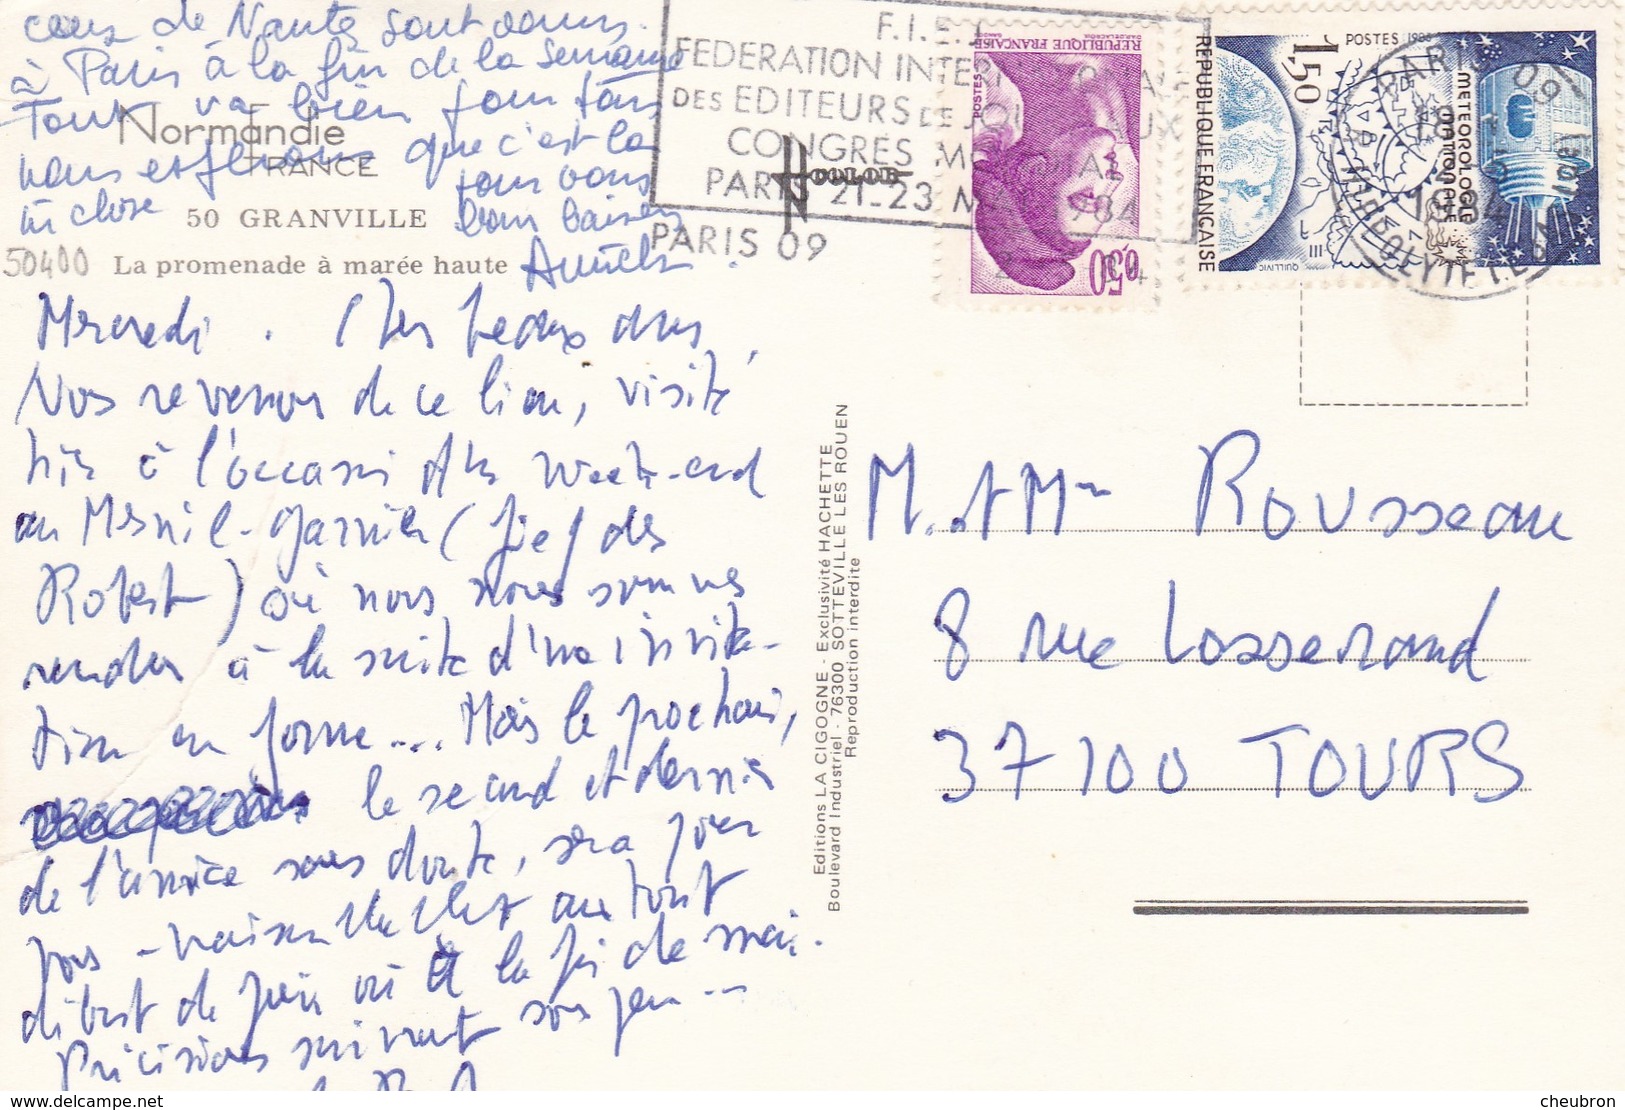 ceux de Nantes sont venus
à Paris à la fin de la semaine
Tout va bien pour tous
nous espérons que c'est la
même chose pour vous
Bons baisers
Normandie
FRANCE
50 GRANVILLE
50400 La promenade à marée haute
Mercredi. Chers deux,
Nous revenons de ce lieu, visité
hier à l'occasion du week-end
au Mesnil-Garnier (fief des
Robert) où nous nous sommes
rendus à la suite d'une invita-
tion en forme.... Mais le prochain,
le second et dernier
de l'année sans doute, sera pour
vous - au tout
début de juin ou à la fin de mai.
Précisions suivront sous peu...
F.I.E.J
FEDERATION INTERNATIONALE
DES EDITEURS DE JOURNAUX
CONGRES MONDIAL
PARIS 21-23 MAI 1984
PARIS 09
REPUBLIQUE FRANÇAISE
POSTES
0,30
POSTES 1983
1,50
REPUBLIQUE FRANÇAISE
METEOROLOGIE
NATIONALE
QUILLIVIC
PARIS 09
1984
Editions LA CIGOGNE - Exclusivité HACHETTE
Boulevard Industriel - 76300 SOTTEVILLE LES ROUEN
Reproduction interdite
M. et Mme Rousseau
8 rue Losserand
37100 TOURS
www.delcampe.net
cheubron